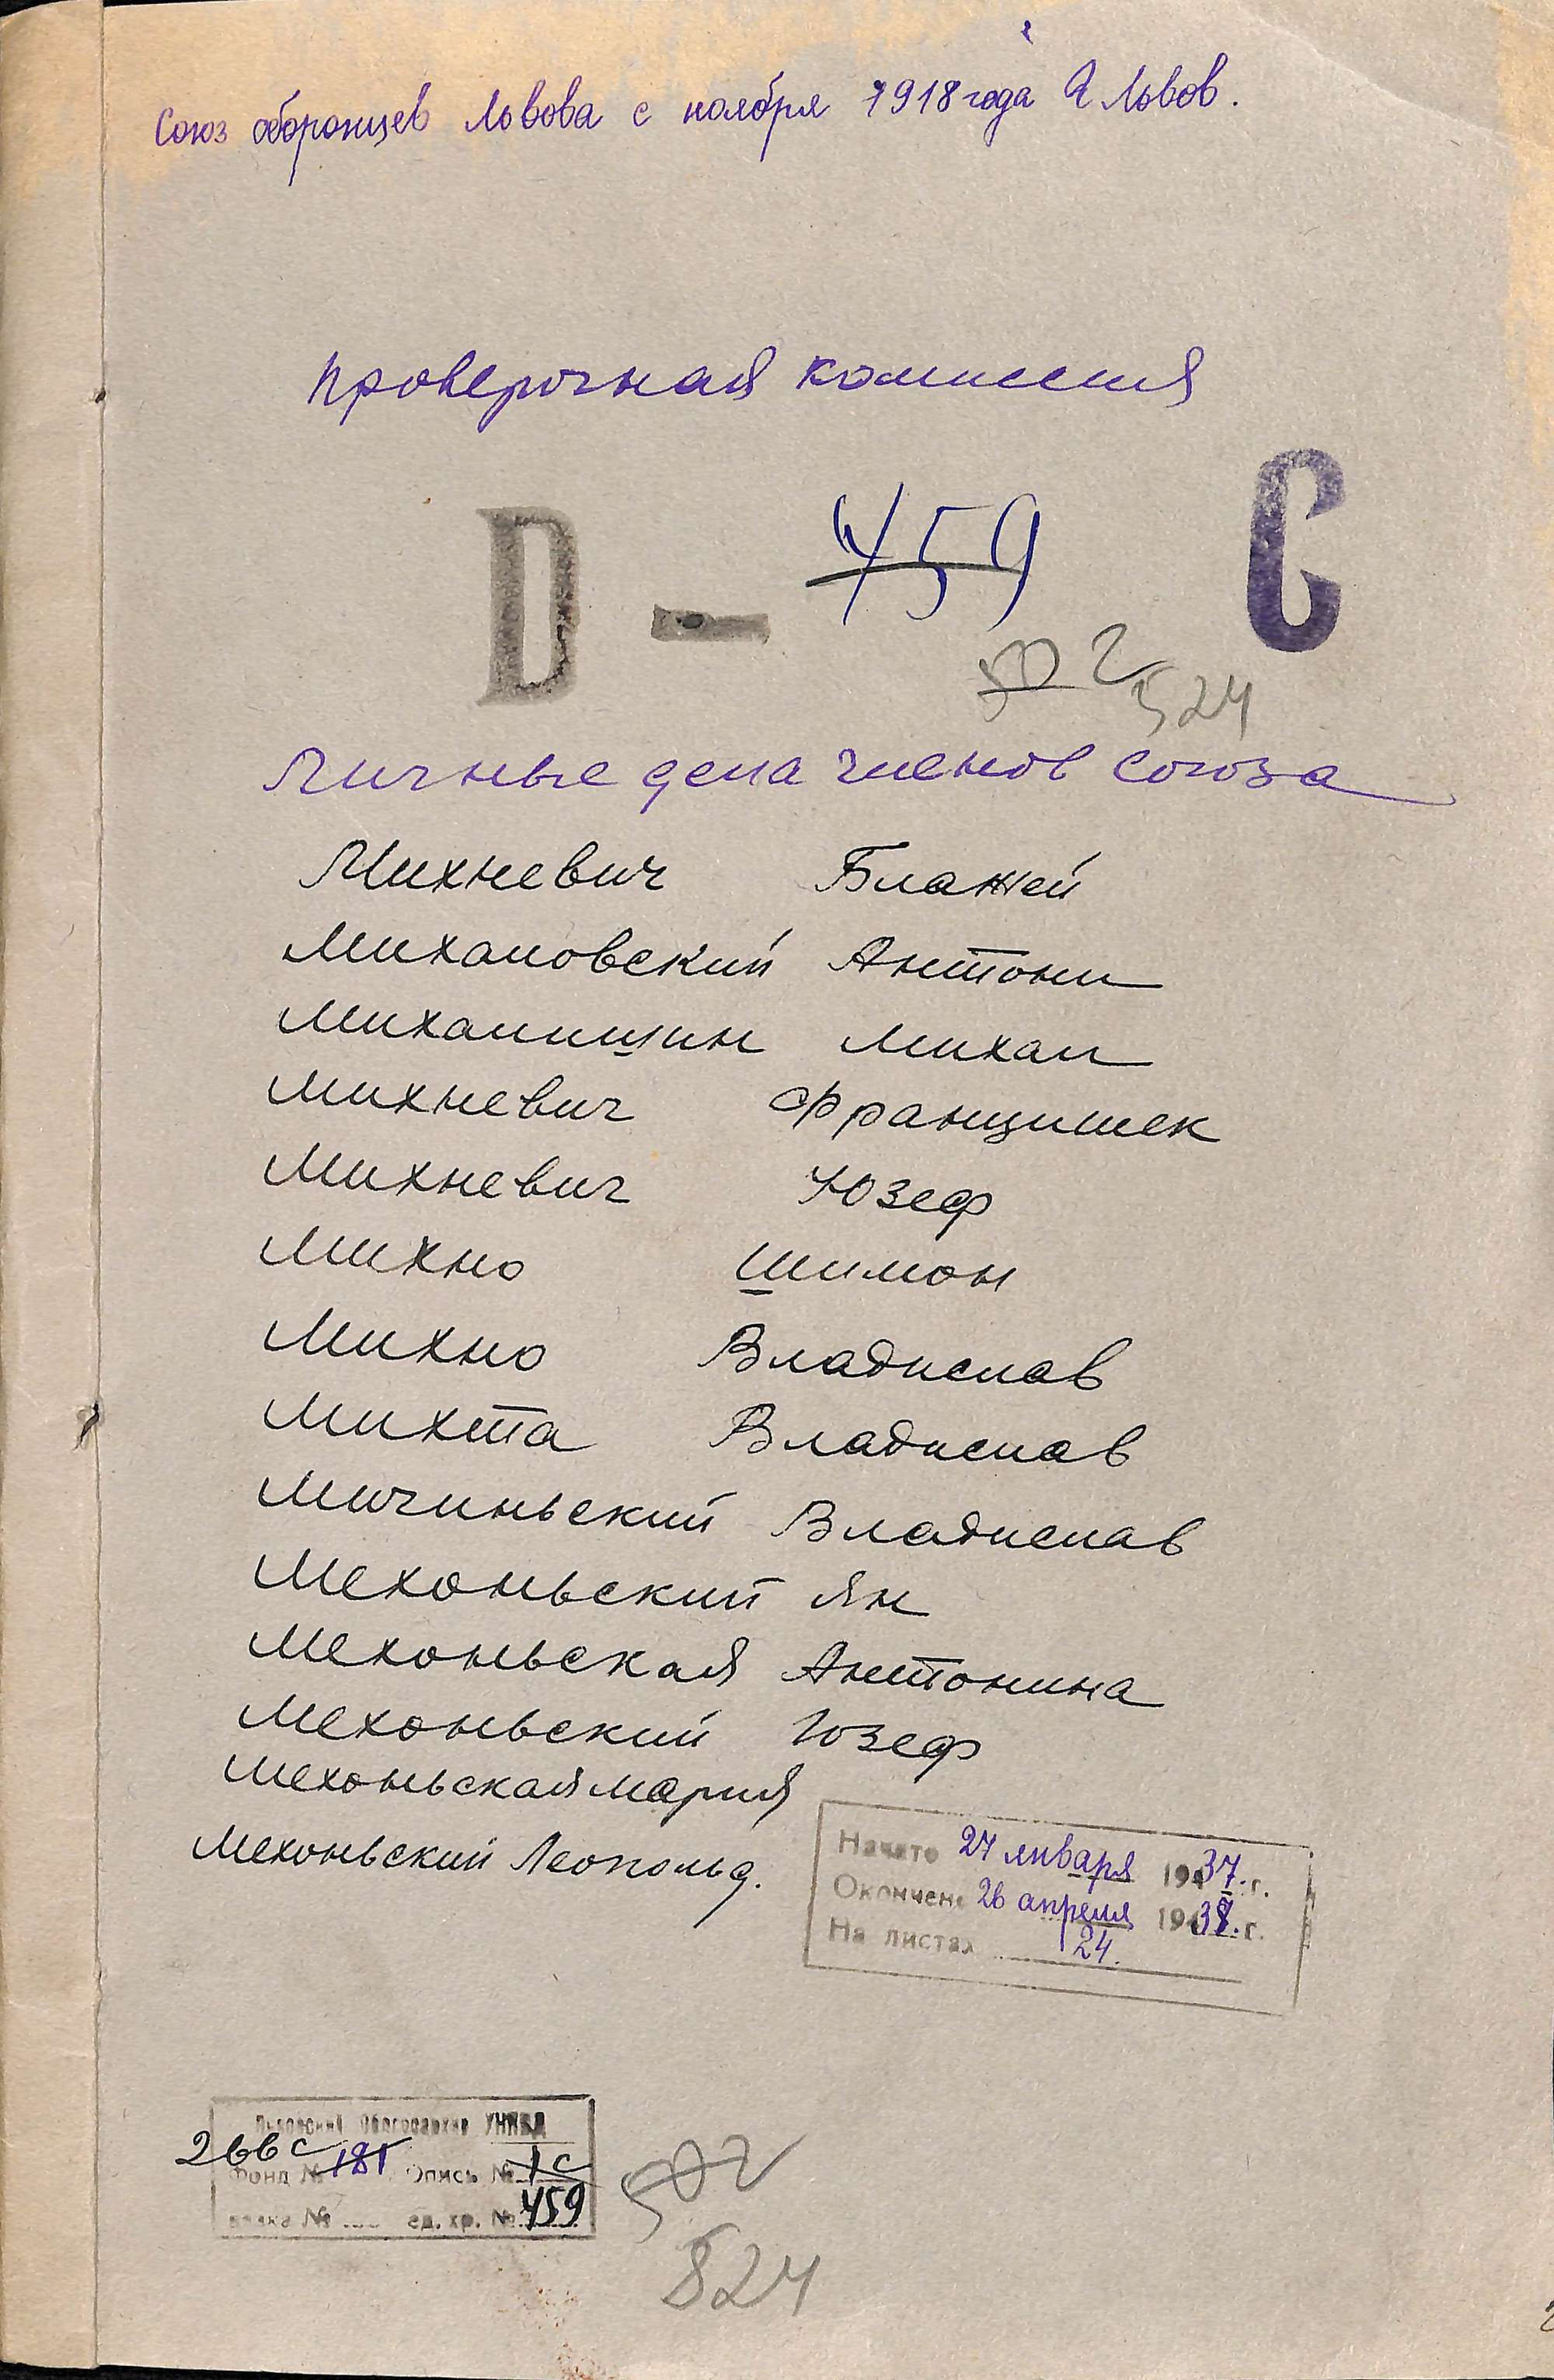 Союз оборонцев Львова с ноября 1918 года г Львов.
Проверочная комиссия
D - 459 C
502 524
Личные дела членов союза
Михневич Блажей
Михаловский Антони
Михалишин Михал
Михневич Францишек
Михневич Юзеф
Михно Шимон
Михно Владислав
Михта Владислав
Мичиньский Владислав
Мехоньский Ян
Мехоньская Антонина
Мехоньский Юзеф
Мехоньская Мария
Мехоньский Леопольд.
Начато 27 января 1937.г.
Окончено 26 апреля 1938.г.
На листах 24.
Львовский Облгосархив УНКВД
266 с
Фонд № 181 Опись № 1с
вязка № ед. хр. № 459
502
524